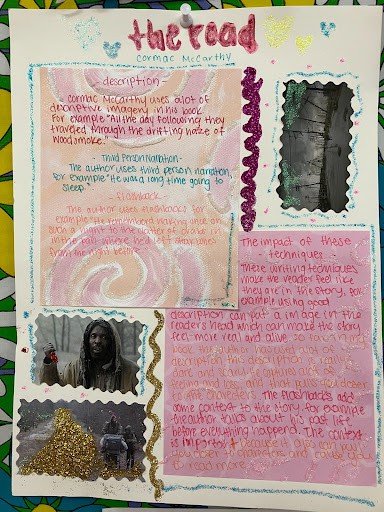 the road
cormac McCarthy
- description -
cormac McCarthy uses alot of
descriptive imagery in his book.
For example "All the day following they
traveled through the drifting haze of
woodsmoke."
· Third Person Narration·
The author uses third person narration,
for example "He was a long time going to
sleep."
· Flashback ·
The author uses flashbacks for
example "He remembered waking once on
such a night to the clatter of crabs
in the pan where he'd left steak bones
from the night before"
The impact of these
techniques
These writing techniques
make the reader feel like
they are in the story, for
example using good
description can put a image in the
readers head which can make the story
feel more real and alive. so for
book the author
dark and scary
feeling and loss, and that pulls you closer
to the characters. The flashbacks add
some context to the story, for example
the author talks about his past life
before everything happend. The context
is important because it also can pull
you closer to characters and cause you
to read more.